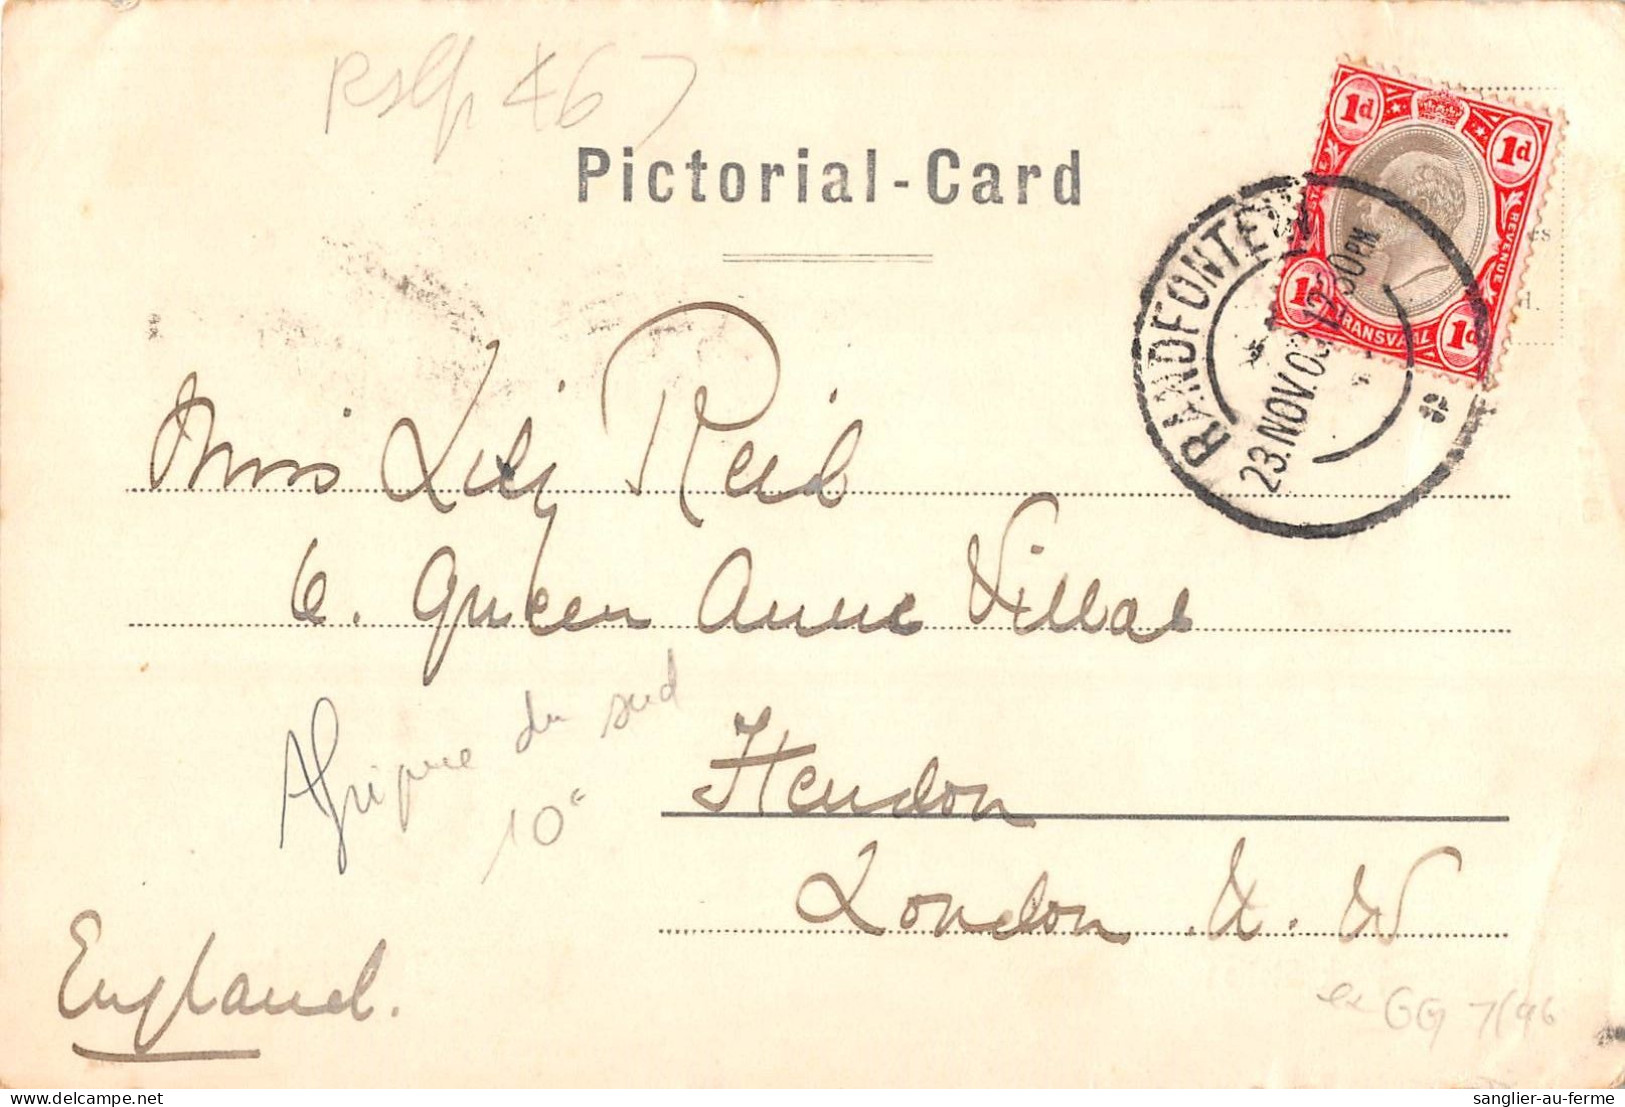 467
Pictorial-Card
1d 1d
REVENUE
TRANSVAAL 1d
RANDFONTEIN
23.NOV.03 12.30PM
Miss Lily Reid
6. Queen Anne Villas
Afrique du sud
10€
Hendon
London . N. W
England.
ex GG 7/96
www.delcampe.net
sanglier-au-ferme